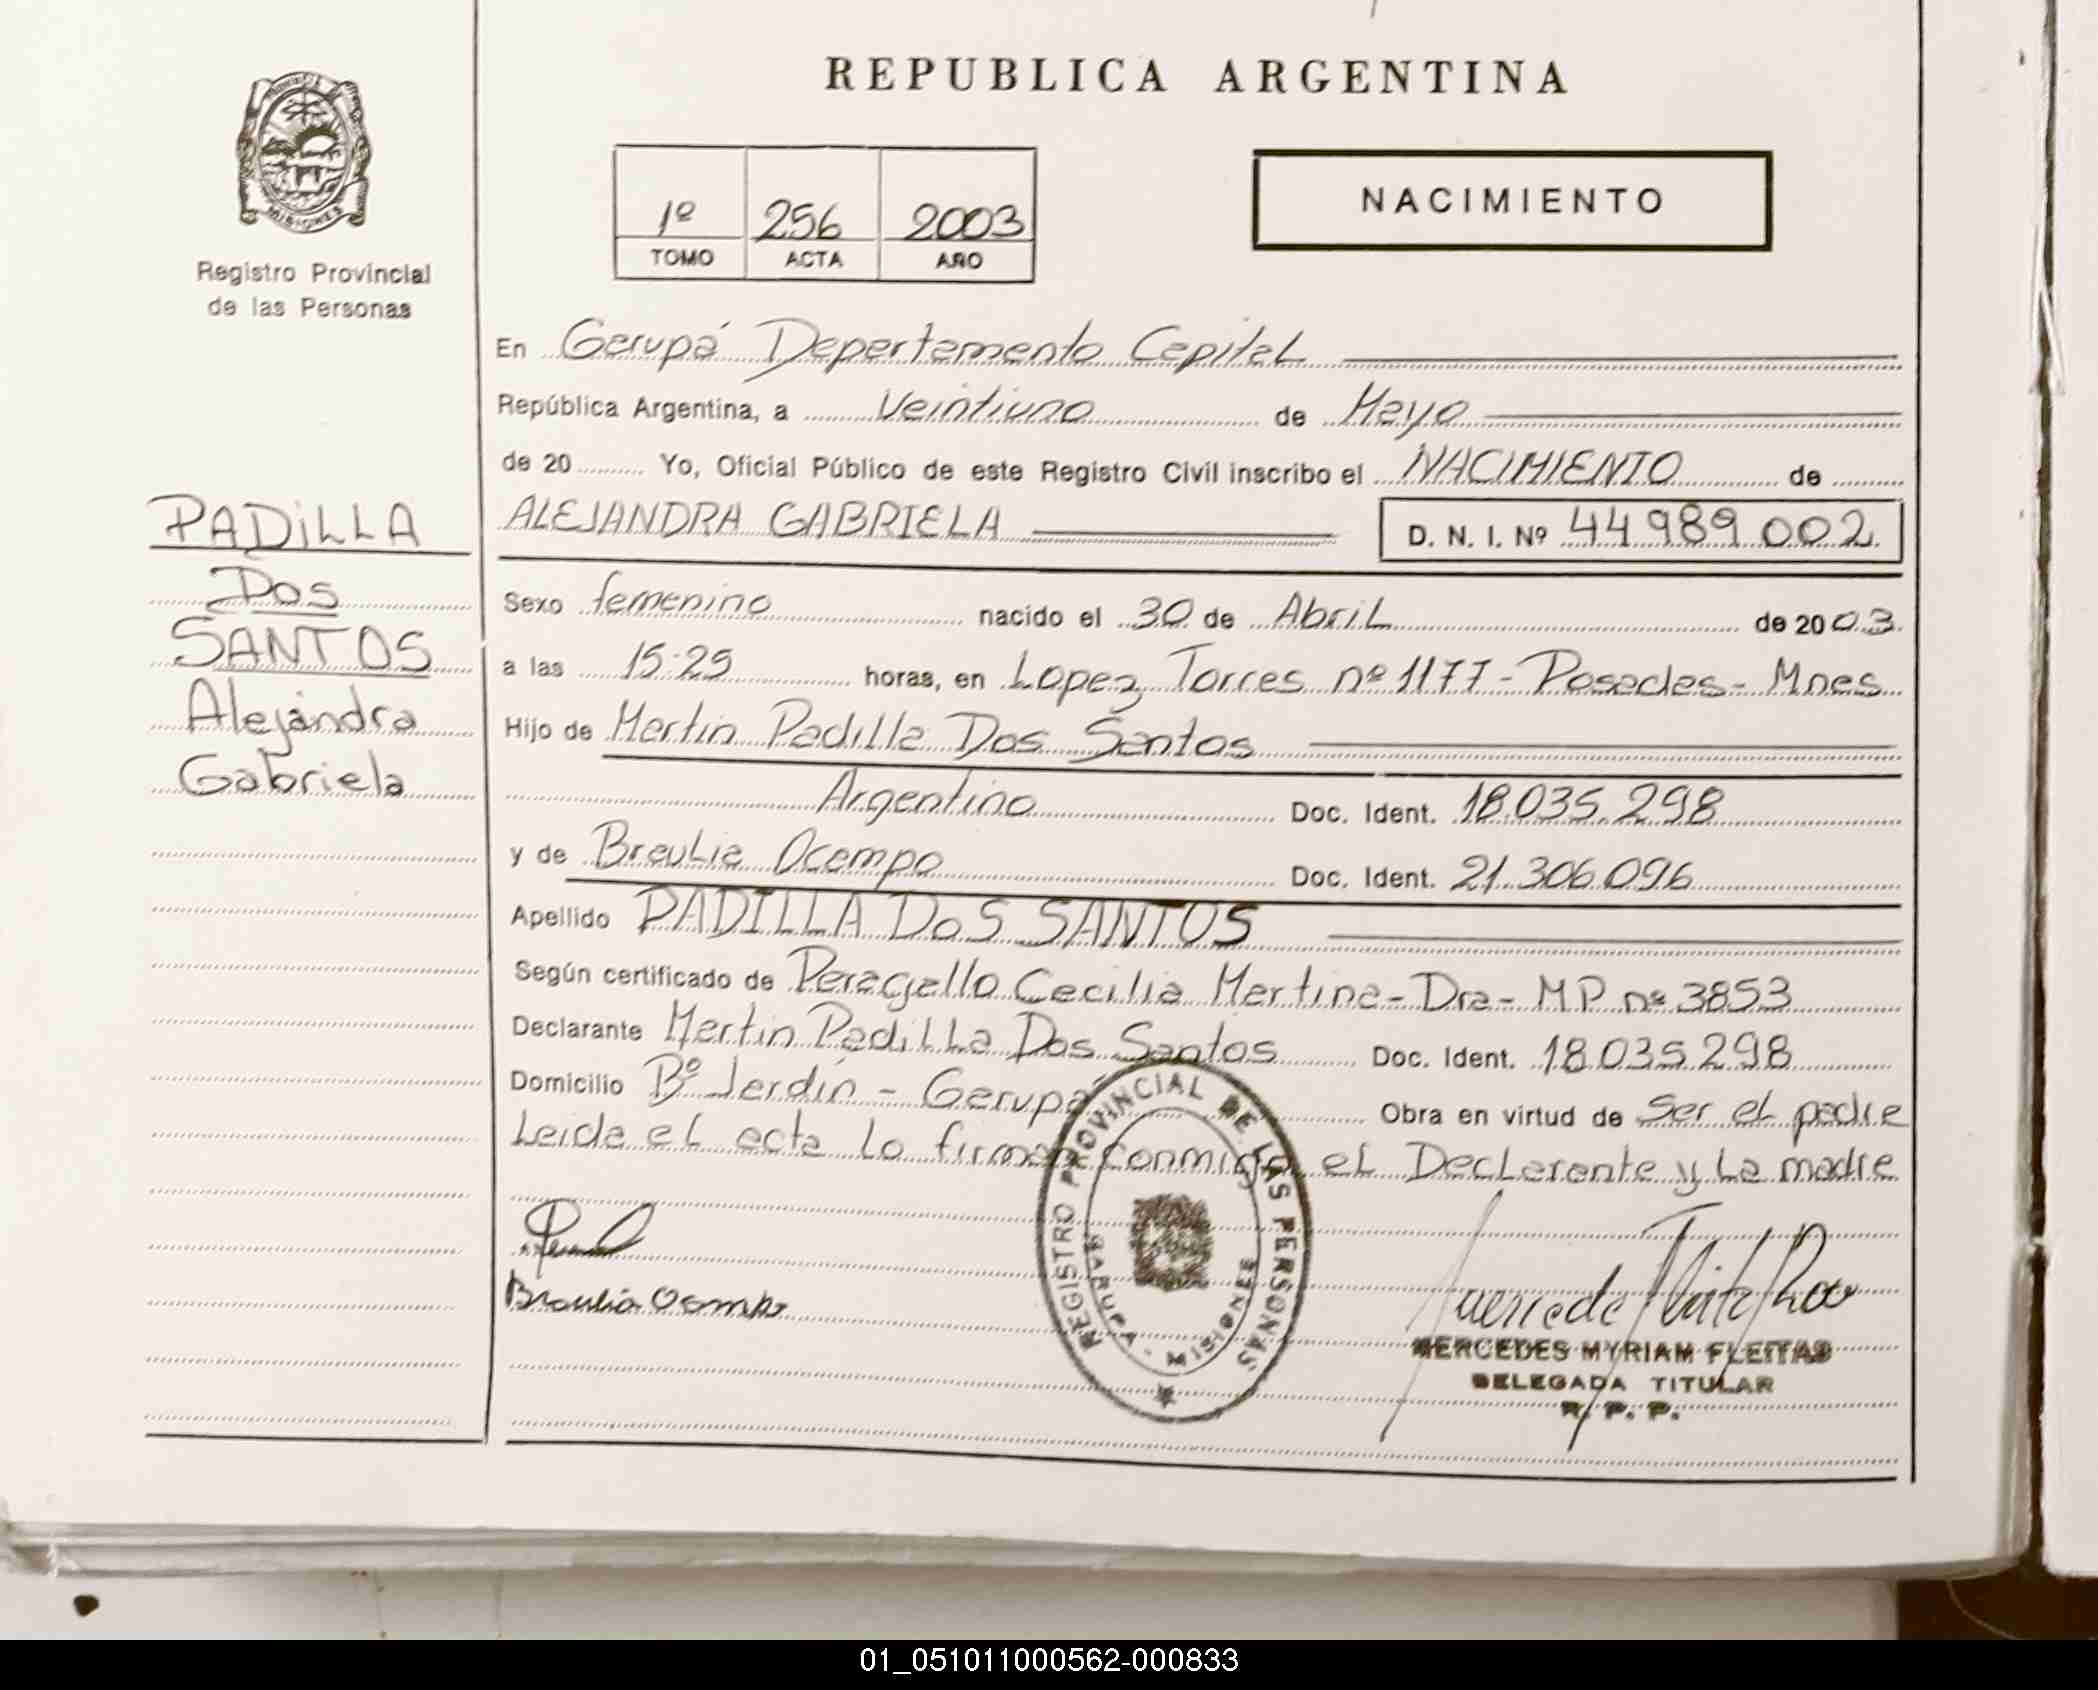 REPUBLICA ARGENTINA
MISIONES
Registro Provincial
de las Personas
1º 256 2003
TOMO ACTA AÑO
NACIMIENTO
En Garupá Departamento Capital
República Argentina, a Veintiuno de Mayo
de 20 Yo, Oficial Público de este Registro Civil inscribo el NACIMIENTO de
ALEJANDRA GABRIELA D. N. I. Nº 44989002
PADiLLA
Dos
SANTOS
Alejandra
Gabriela
Sexo femenino nacido el 30 de Abril de 2003
a las 15:29 horas, en Lopez Torres nº 1177 - Posadas - Mnes
Hijo de Martin Padilla Dos Santos
Argentino Doc. Ident. 18.035.298
y de Braulia Ocampo Doc. Ident. 21.306.096
Apellido PADILLA DoS SANTOS
Según certificado de Peragallo Cecilia Martina - Dra - M.P. nº 3853
Declarante Martin Padilla Dos Santos Doc. Ident. 18.035.298
Domicilio Bº Jardín - Garupá Obra en virtud de Ser el padre
Leida el acta lo firman conmigo el Declarante y La madre
Braulia Ocampo
REGISTRO PROVINCIAL DE LAS PERSONAS
GARUPA - MISIONES
MERCEDES MYRIAM FLEITAS
DELEGADA TITULAR
R. P. P.
01_051011000562-000833